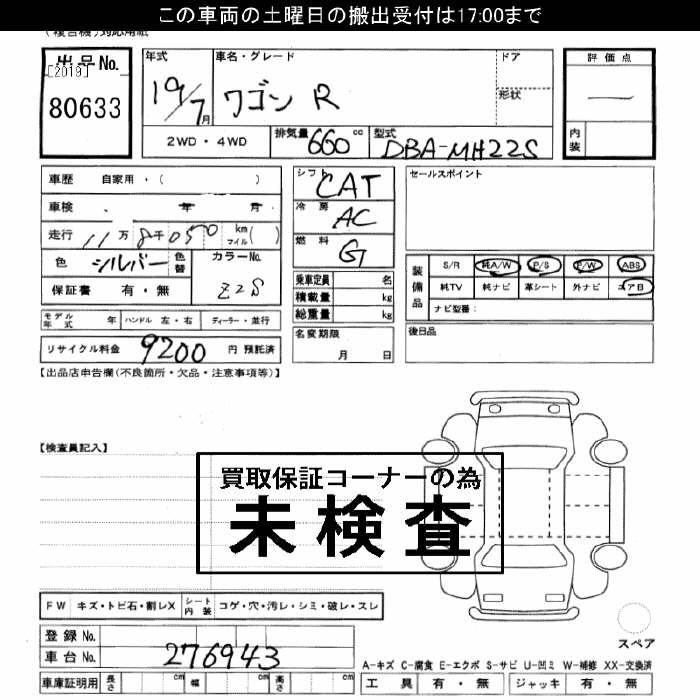 この車両の土曜日の搬出受付は17:00まで
出品No.
[2019]
80633
年式
19/7月
車名・グレード
ワゴン R
ドア
形状
評価点
―
内装
2WD・4WD
排気量 660 cc
型式 DBA-MH22S
車歴 自家用・( )
車検 . 年 月
走行 11万8千050 km マイル( )
色 シルバー 色替
カラーNo. Z2S
保証書 有・無
モデル年式 年 ハンドル 左・右 ディーラー・並行
リサイクル料金 9200 円 預託済
シフト CAT
冷房 AC
燃料 G
乗車定員 名
積載量 kg
総重量 kg
名変期限
月 日
セールスポイント
装備品
S/R 純A/W P/S P/W ABS
純TV 純ナビ 革シート 外ナビ エアB
ナビ型番:
後日品
【出品店申告欄(不良箇所・欠品・注意事項等)】
【検査員記入】
買取保証コーナーの為
未検査
FW キズ・トビ石・割レX
シート内装 コゲ・穴・汚レ・シミ・破レ・スレ
登録 No.
車台 No. 276943
車庫証明用 長さ cm 幅 cm 高さ cm
スペア
A-キズ C-腐食 E-エクボ S-サビ U-凹ミ W-補修 XX-交換済
工具 有・無 ジャッキ 有・無